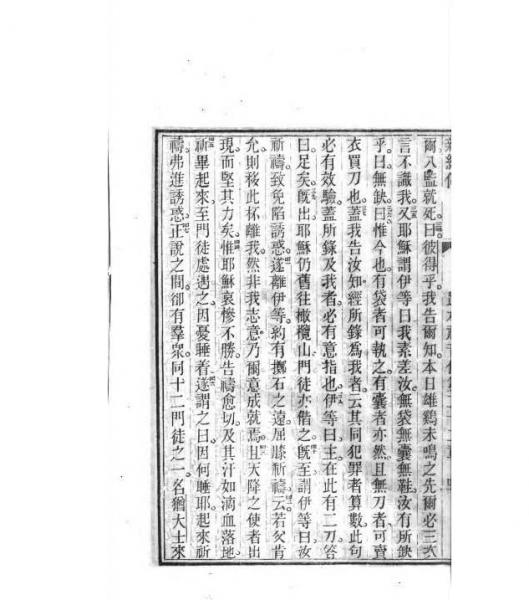 爾入監就死曰彼得乎我告爾知本日雄鷄未鳴之先爾必三次
言不識我又耶穌謂伊等曰我素差汝無袋無囊無鞋汝有所缺
乎曰無缺曰惟今也有袋者可執之有囊者亦然且無刀者可賣
衣買刀也蓋我告汝知經所錄爲我者云其同犯罪者算數此句
必有效驗蓋所錄及我者必有意指也伊等曰主在此有二刀答
曰足矣旣出耶穌仍舊往橄欖山門徒亦偕之旣至謂伊等曰汝
祈禱致免陷誘惑遂離伊等約有擲石之遠屈膝祈禱云若父肯
允則移此杯離我然非我志意乃爾意成就焉且天降之使者出
現而堅其力矣惟耶穌哀慘不勝告禱愈切及其汗如滴血落地
祈畢起來至門徒處遇之因憂睡着遂謂之曰因何睡耶起來祈
禱弗進誘惑正說之間卻有羣衆同十二門徒之一名猶大士來